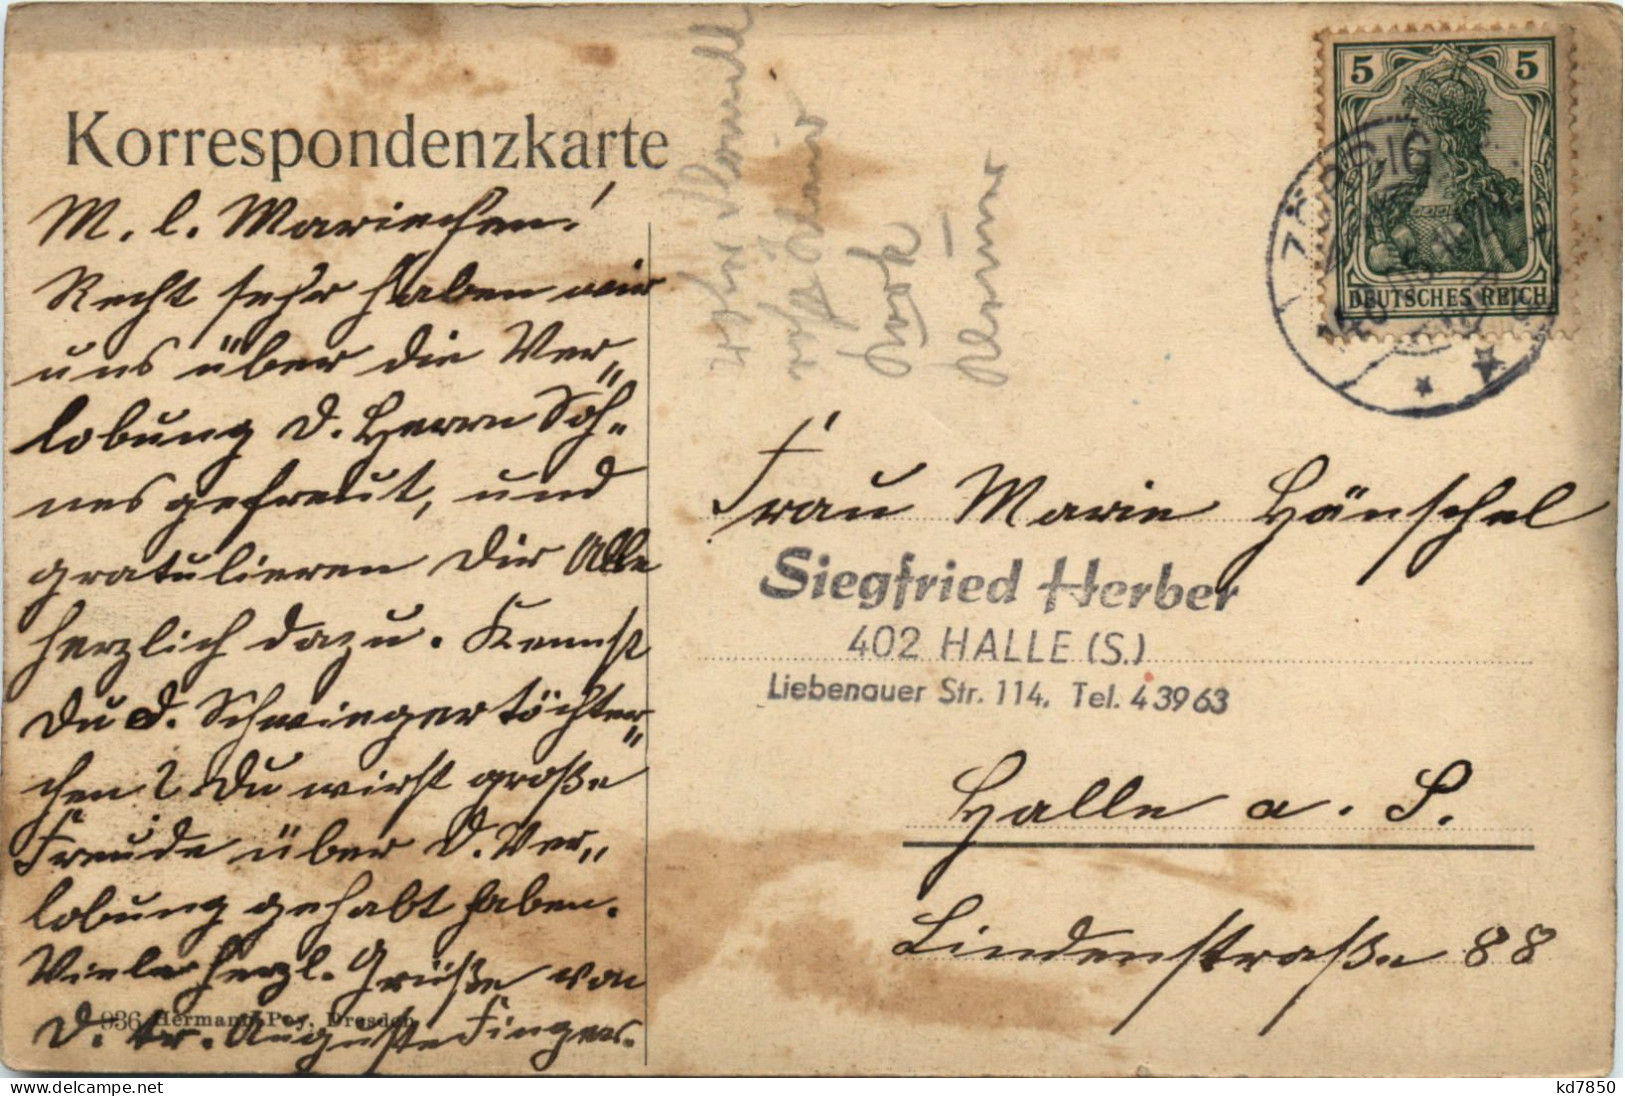 Korrespondenzkarte
M. l. Mariechen!
Recht sehr haben wir
uns über die Ver„
lobung D. Herrn Soh„
nes gefreut, und
gratulieren Dir Alle
herzlich dazu. Kennst
Du d. Schwiegertöchter„
chen? Du wirst große
Freude über D. Ver„
lobung gehabt haben.
Viele herzl. Grüße von
D. tr. Auguste Fingers.
936 Hermann Poy, Dresden
5 5
DEUTSCHES REICH
ZÖRBIG
Frau Marie Hänschel
Siegfried Herber
402 HALLE (S.)
Liebenauer Str. 114, Tel. 4 39 63
Halle a. S.
Lindenstraße 88
kd7850